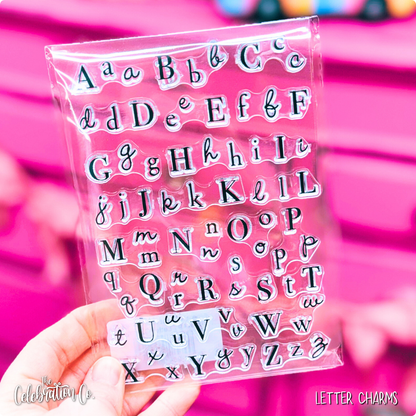 A a a B b b C c c
d d D e e E f f F
G g g H h h i I i
j j J k k K l l L
M m m N n n O o o P
q q Q r r R s s S t T p p
t U u u V v v W w w
x x X Y y y Z z z
the
Celebration Co.
LETTER CHARMS